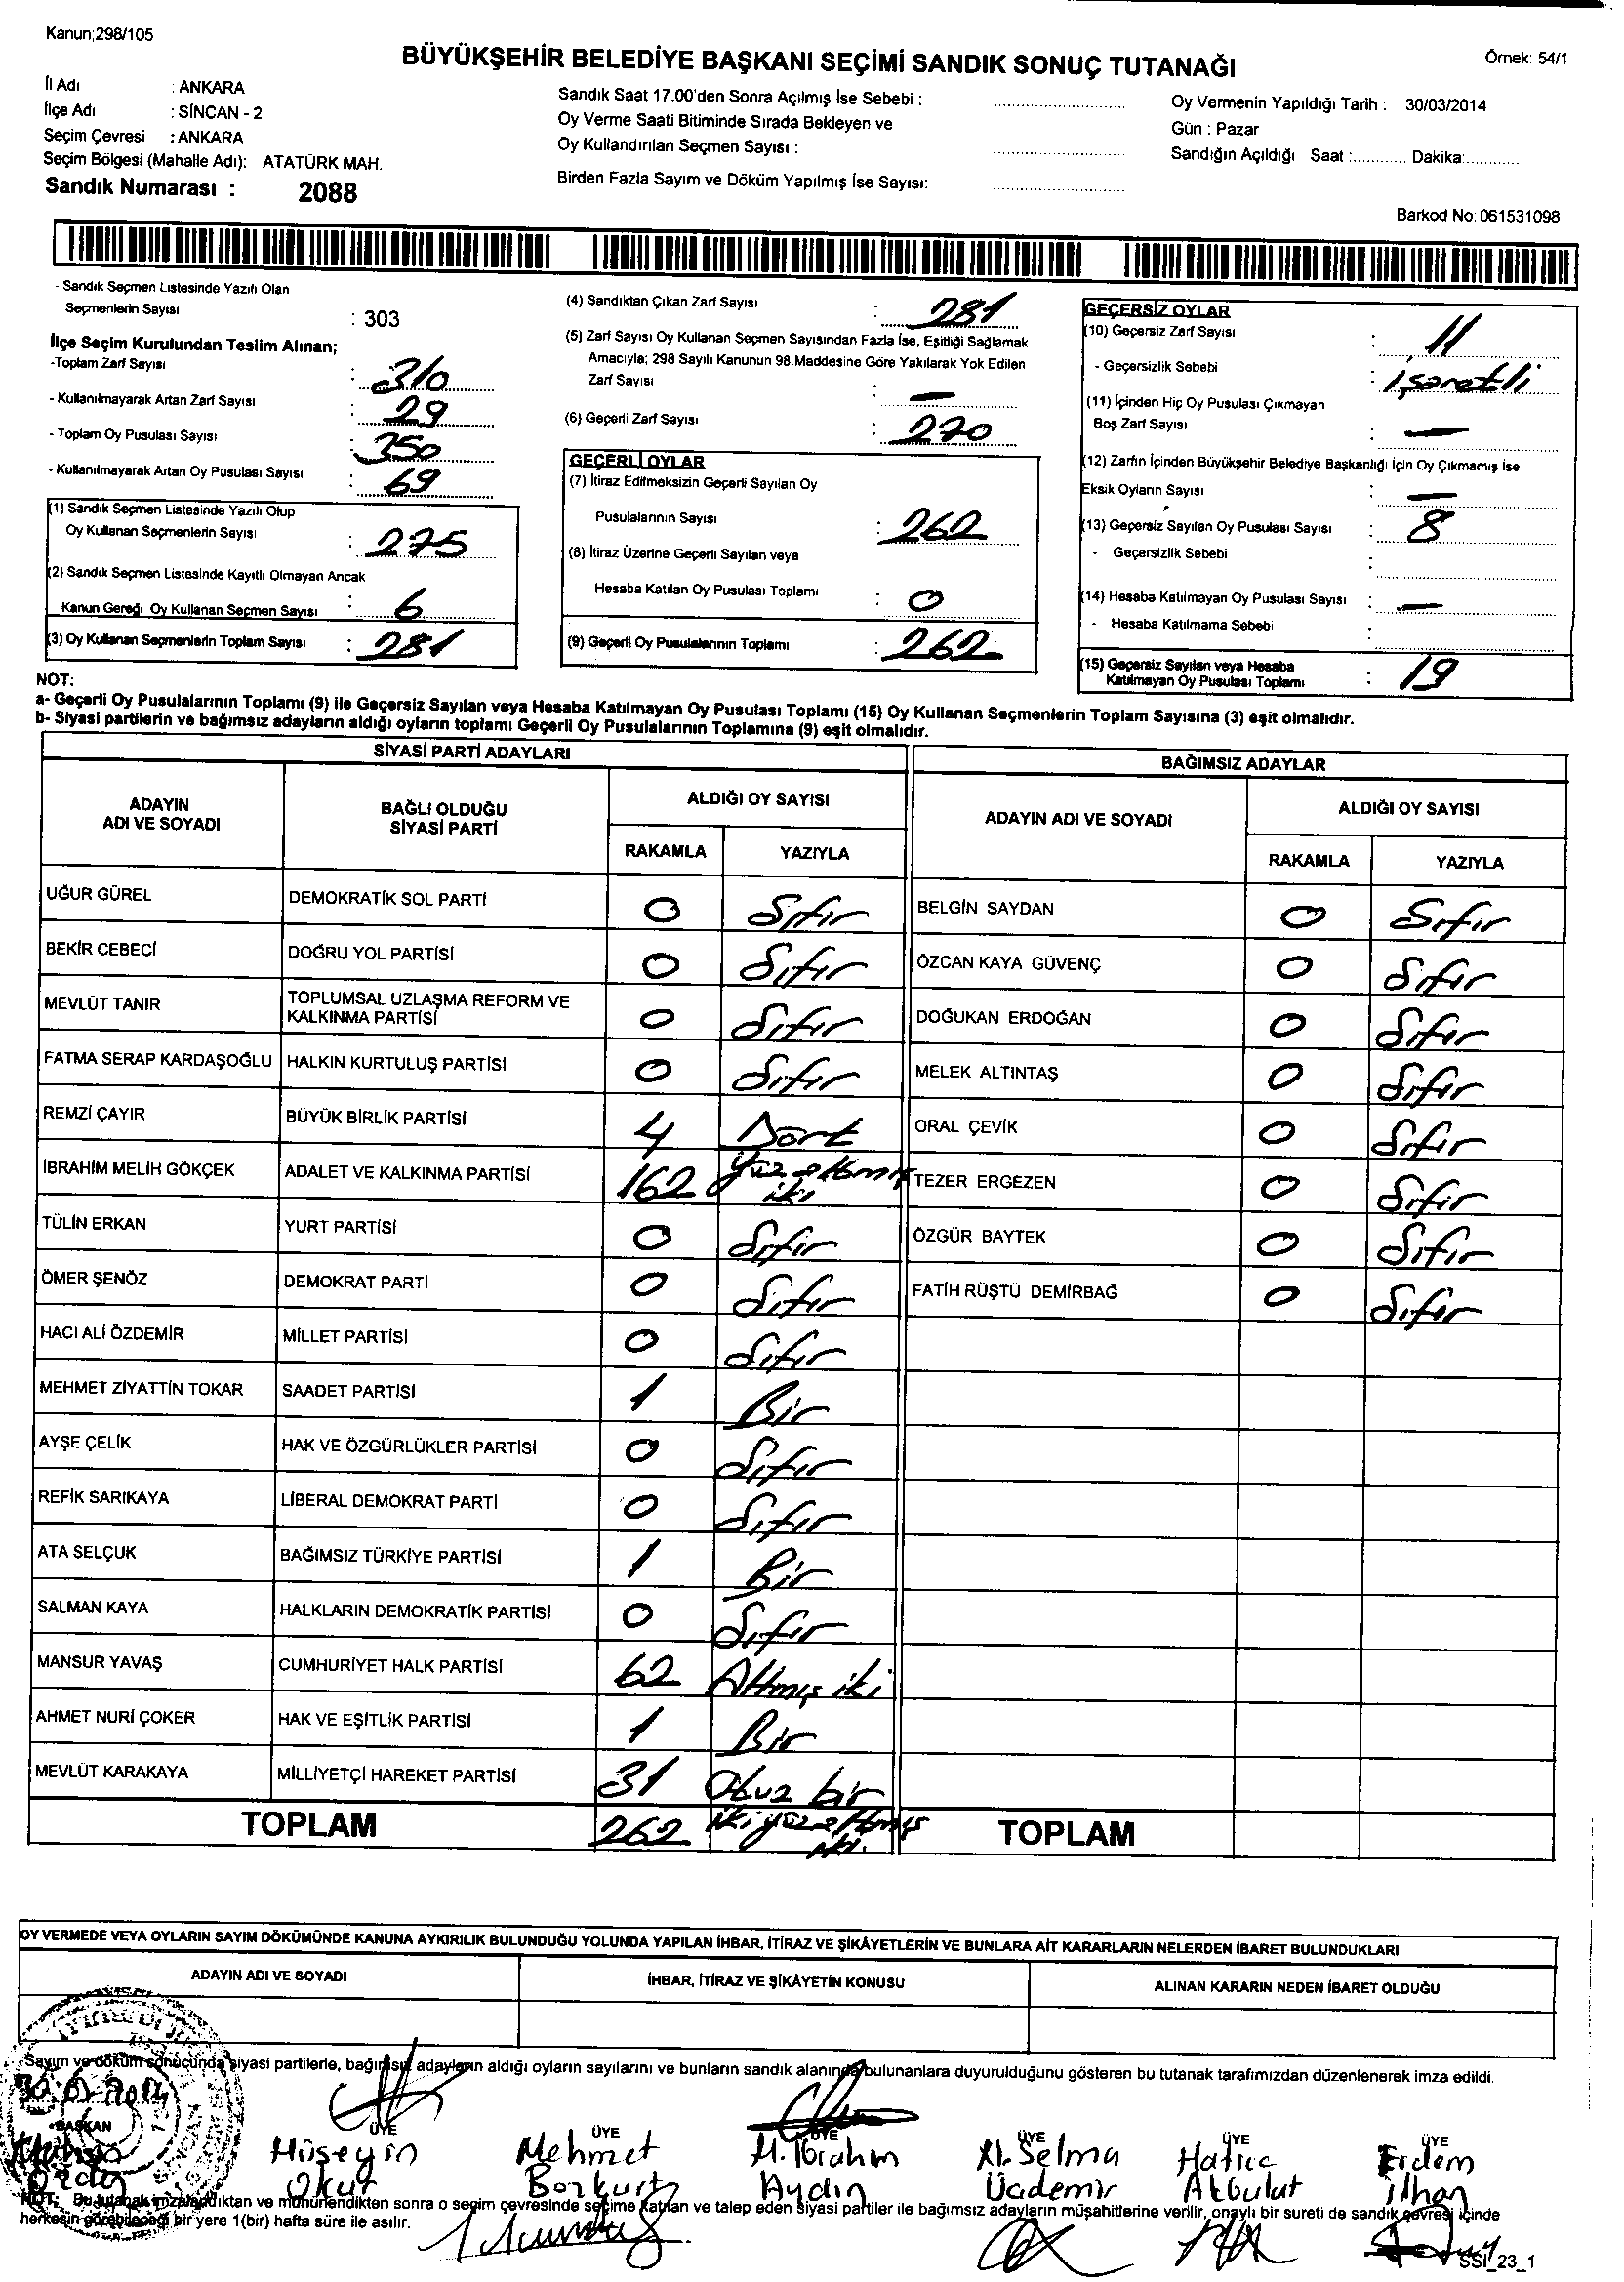 Kanun;298/105
BÜYÜKŞEHİR BELEDİYE BAŞKANI SEÇİMİ SANDIK SONUÇ TUTANAĞI
Örnek: 54/1
İl Adı : ANKARA
İlçe Adı : SİNCAN - 2
Seçim Çevresi : ANKARA
Seçim Bölgesi (Mahalle Adı): ATATÜRK MAH.
Sandık Numarası : 2088
Sandık Saat 17.00'den Sonra Açılmış İse Sebebi : ..........
Oy Verme Saati Bitiminde Sırada Bekleyen ve
Oy Kullandırılan Seçmen Sayısı : ..........
Birden Fazla Sayım ve Döküm Yapılmış İse Sayısı: ..........
Oy Vermenin Yapıldığı Tarih : 30/03/2014
Gün : Pazar
Sandığın Açıldığı Saat :.......... Dakika:..........
Barkod No: 061531098
- Sandık Seçmen Listesinde Yazılı Olan
Seçmenlerin Sayısı : 303
İlçe Seçim Kurulundan Teslim Alınan;
-Toplam Zarf Sayısı : 310
- Kullanılmayarak Artan Zarf Sayısı : 29
- Toplam Oy Pusulası Sayısı : 350
- Kullanılmayarak Artan Oy Pusulası Sayısı : 69
(1) Sandık Seçmen Listesinde Yazılı Olup
Oy Kullanan Seçmenlerin Sayısı : 275
(2) Sandık Seçmen Listesinde Kayıtlı Olmayan Ancak
Kanun Gereği Oy Kullanan Seçmen Sayısı : 6
(3) Oy Kullanan Seçmenlerin Toplam Sayısı : 281
(4) Sandıktan Çıkan Zarf Sayısı : 281
(5) Zarf Sayısı Oy Kullanan Seçmen Sayısından Fazla İse, Eşitliği Sağlamak
Amacıyla; 298 Sayılı Kanunun 98.Maddesine Göre Yakılarak Yok Edilen
Zarf Sayısı : —
(6) Geçerli Zarf Sayısı : 270
GEÇERLİ OYLAR
(7) İtiraz Edilmeksizin Geçerli Sayılan Oy
Pusulalarının Sayısı : 262
(8) İtiraz Üzerine Geçerli Sayılan veya
Hesaba Katılan Oy Pusulası Toplamı : 0
(9) Geçerli Oy Pusulalarının Toplamı : 262
GEÇERSİZ OYLAR
(10) Geçersiz Zarf Sayısı : 11
- Geçersizlik Sebebi : işaretli
(11) İçinden Hiç Oy Pusulası Çıkmayan
Boş Zarf Sayısı : —
(12) Zarfın İçinden Büyükşehir Belediye Başkanlığı İçin Oy Çıkmamış İse
Eksik Oyların Sayısı : —
(13) Geçersiz Sayılan Oy Pusulası Sayısı : 8
- Geçersizlik Sebebi :
(14) Hesaba Katılmayan Oy Pusulası Sayısı : —
- Hesaba Katılmama Sebebi :
(15) Geçersiz Sayılan veya Hesaba
Katılmayan Oy Pusulası Toplamı : 19
NOT:
a- Geçerli Oy Pusulalarının Toplamı (9) ile Geçersiz Sayılan veya Hesaba Katılmayan Oy Pusulası Toplamı (15) Oy Kullanan Seçmenlerin Toplam Sayısına (3) eşit olmalıdır.
b- Siyasi partilerin ve bağımsız adayların aldığı oyların toplamı Geçerli Oy Pusulalarının Toplamına (9) eşit olmalıdır.
SİYASİ PARTİ ADAYLARI
ADAYIN ADI VE SOYADI BAĞLI OLDUĞU SİYASİ PARTİ ALDIĞI OY SAYISI
RAKAMLA YAZIYLA
UĞUR GÜREL DEMOKRATİK SOL PARTİ 0 Sıfır
BEKİR CEBECİ DOĞRU YOL PARTİSİ 0 Sıfır
MEVLÜT TANIR TOPLUMSAL UZLAŞMA REFORM VE KALKINMA PARTİSİ 0 Sıfır
FATMA SERAP KARDAŞOĞLU HALKIN KURTULUŞ PARTİSİ 0 Sıfır
REMZİ ÇAYIR BÜYÜK BİRLİK PARTİSİ 4 Dört
İBRAHİM MELİH GÖKÇEK ADALET VE KALKINMA PARTİSİ 162 Yüz altmış iki
TÜLİN ERKAN YURT PARTİSİ 0 Sıfır
ÖMER ŞENÖZ DEMOKRAT PARTİ 0 Sıfır
HACI ALİ ÖZDEMİR MİLLET PARTİSİ 0 Sıfır
MEHMET ZİYATTİN TOKAR SAADET PARTİSİ 1 Bir
AYŞE ÇELİK HAK VE ÖZGÜRLÜKLER PARTİSİ 0 Sıfır
REFİK SARIKAYA LİBERAL DEMOKRAT PARTİ 0 Sıfır
ATA SELÇUK BAĞIMSIZ TÜRKİYE PARTİSİ 1 Bir
SALMAN KAYA HALKLARIN DEMOKRATİK PARTİSİ 0 Sıfır
MANSUR YAVAŞ CUMHURİYET HALK PARTİSİ 62 Altmış iki
AHMET NURİ ÇOKER HAK VE EŞİTLİK PARTİSİ 1 Bir
MEVLÜT KARAKAYA MİLLİYETÇİ HAREKET PARTİSİ 31 Otuz bir
TOPLAM 262 iki yüz altmış iki.
BAĞIMSIZ ADAYLAR
ADAYIN ADI VE SOYADI ALDIĞI OY SAYISI
RAKAMLA YAZIYLA
BELGİN SAYDAN 0 Sıfır
ÖZCAN KAYA GÜVENÇ 0 Sıfır
DOĞUKAN ERDOĞAN 0 Sıfır
MELEK ALTINTAŞ 0 Sıfır
ORAL ÇEVİK 0 Sıfır
TEZER ERGEZEN 0 Sıfır
ÖZGÜR BAYTEK 0 Sıfır
FATİH RÜŞTÜ DEMİRBAĞ 0 Sıfır
TOPLAM
OY VERMEDE VEYA OYLARIN SAYIM DÖKÜMÜNDE KANUNA AYKIRILIK BULUNDUĞU YOLUNDA YAPILAN İHBAR, İTİRAZ VE ŞİKÂYETLERİN VE BUNLARA AİT KARARLARIN NELERDEN İBARET BULUNDUKLARI
ADAYIN ADI VE SOYADI İHBAR, İTİRAZ VE ŞİKÂYETİN KONUSU ALINAN KARARIN NEDEN İBARET OLDUĞU
Sayım ve döküm sonucunda siyasi partilerle, bağımsız adayların aldığı oyların sayılarını ve bunların sandık alanında bulunanlara duyurulduğunu gösteren bu tutanak tarafımızdan düzenlenerek imza edildi.
BAŞKAN ÜYE ÜYE ÜYE ÜYE ÜYE ÜYE
Hüseyin Mehmet H. İbrahim N. Selma Hatice Erdem
Okur Bozkurt Aydın Üçdemir Akbulut ilhan
NOT: Bu tutanak imzalandıktan ve mühürlendikten sonra o seçim çevresinde seçime katılan ve talep eden siyasi partiler ile bağımsız adayların müşahitlerine verilir, onaylı bir sureti de sandık çevresi içinde
herkesin görebileceği bir yere 1(bir) hafta süre ile asılır.
SSI_23_1